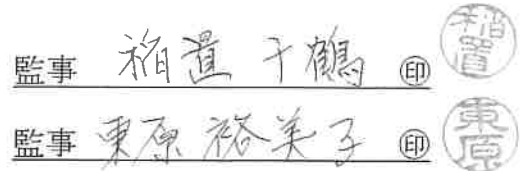 監事 稲置 千鶴 ㊞ 稲置
監事 東原 裕美子 ㊞ 東原